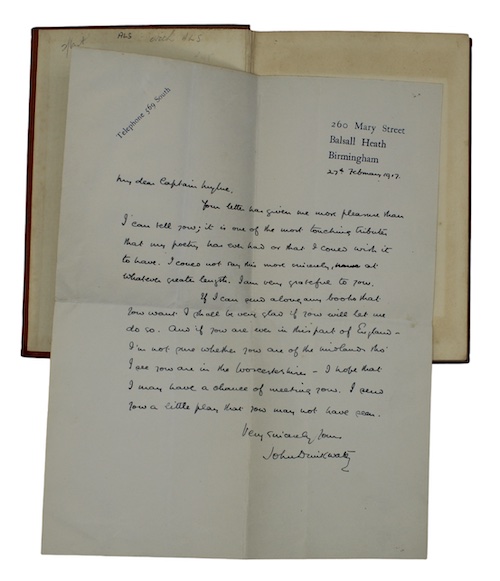 ALS
ALS
Telephone 569 South
260 Mary Street
Balsall Heath
Birmingham
27th February 1917.
My dear Captain
Your letter has given me more pleasure than
I can tell you; it is one of the most touching tributes
that my poetry has ever had or that I could wish it
to have. I could not say this more sincerely, at
whatever greater length. I am very grateful to you.
If I can send along any books that
you want I shall be very glad if you will let me
do so. And if you are ever in this part of England –
I'm not sure whether you are of the midlands tho'
I see you are in the Worcestershires – I hope that
I may have a chance of meeting you. I send
you a little play that you may not have seen.
Very sincerely yours
John Drinkwater